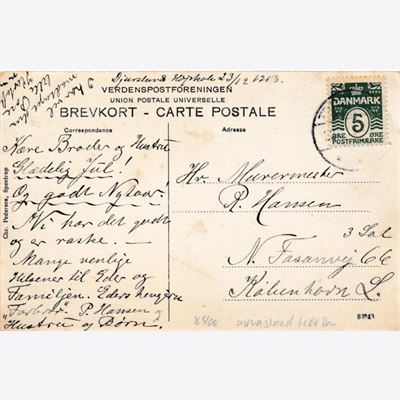 Djursland Højskole 23/12 1213.
VERDENSPOSTFORENINGEN
UNION POSTALE UNIVERSELLE
BREVKORT - CARTE POSTALE
Correspondance
Adresse
DANMARK
5
ØRE ØRE
POSTFRIMÆRKE
Kere Broder og Hustru
Glædelig Jul!
Og godt Nytaar!
Vi har det godt
og er raske. -
Mange venlige
Hilsener til Eder og
Familjen. Eders hengivne
P. Hansen
"Hustru og Børn.
Hr. Murermester
P. Hansen
3 Sal
N. Fasanvej 66
København L.
Chr. Pedersen, Spentrup